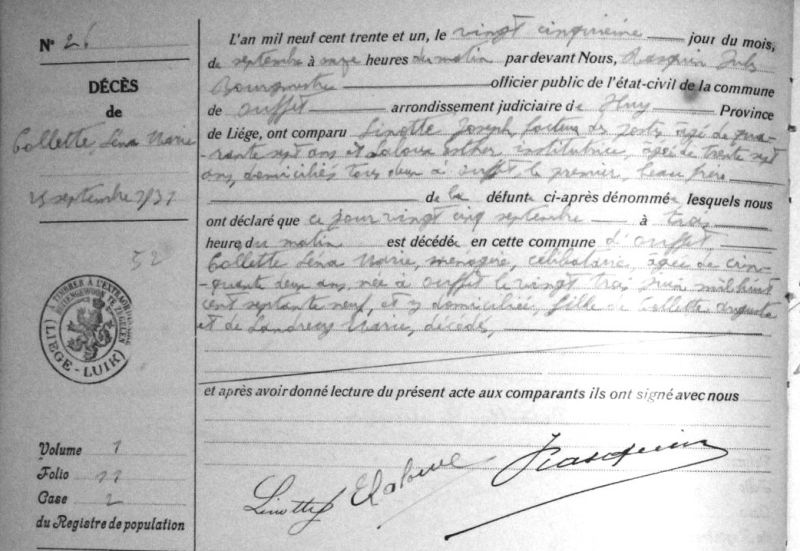 N° 26
DÉCÈS
de
Collette Léna Marie
25 septembre 1931
52
A TIMBRER À L'EXTRAORDINAIRE
BUITENGEWOON TE ZEGELEN
LIÈGE-LUIK
Volume 1
Folio 11
Case 2
du Registre de population
L'an mil neuf cent trente et un, le vingt cinquième jour du mois,
de septembre à onze heures du matin par devant Nous, Rasquin Jules
Bourgmestre officier public de l'état-civil de la commune
de Ouffet arrondissement judiciaire de Huy Province
de Liége, ont comparu Linotte Joseph, facteur des postes, âgé de qua-
-rante sept ans et Laloux Esther institutrice, âgée de trente sept
ans, domiciliés tous deux à Ouffet le premier, beau frère
de la défunte ci-après dénommée lesquels nous
ont déclaré que ce jour vingt cinq septembre à trois
heure du matin est décédée en cette commune d'Ouffet
Collette Léna Marie, ménagère, célibataire, âgée de cin-
-quante deux ans, née à Ouffet le vingt trois juin mil huit
cent septante neuf, et y domiciliée, fille de Collette Auguste
et de Landrecy Marie, décédés,
et après avoir donné lecture du présent acte aux comparants ils ont signé avec nous
Linotte J ELaloux JRasquin